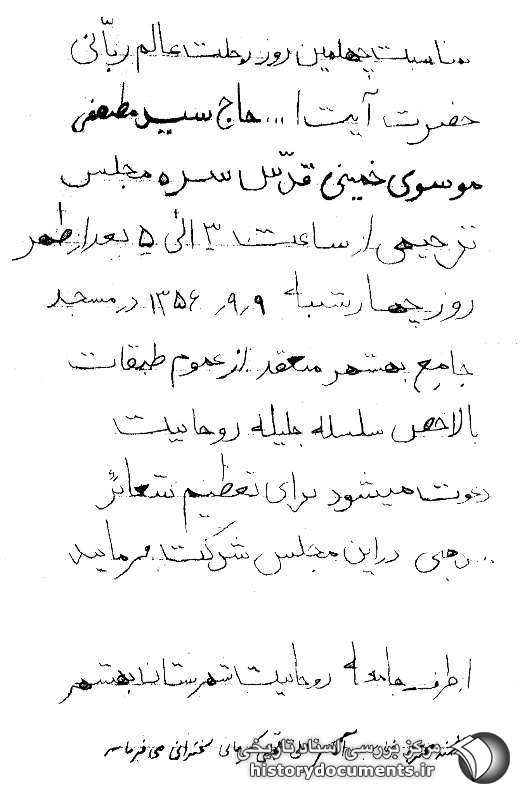 مناسبت چهلمین روز رحلت عالم ربّانی
حضرت آیت ا... حاج سید مصطفی
موسوی خمینی قدّس سره مجلس
ترحیمی از ساعت ۳ الی ۵ بعداز ظهر
روز چهارشنبه ۹,۹, ۱۳۵۶ در مسجد
جامع بهشهر منعقد از عموم طبقات
بالاخص سلسله جلیله روحانیت
دعوت میشود برای تعظیم شعائر
در این مجلس شرکت فرمایید
از طرف جامعه روحانیت شهرستان بهشهر
سخنرانی می فرماید
مرکز بررسی اسناد تاریخی
historydocuments.ir